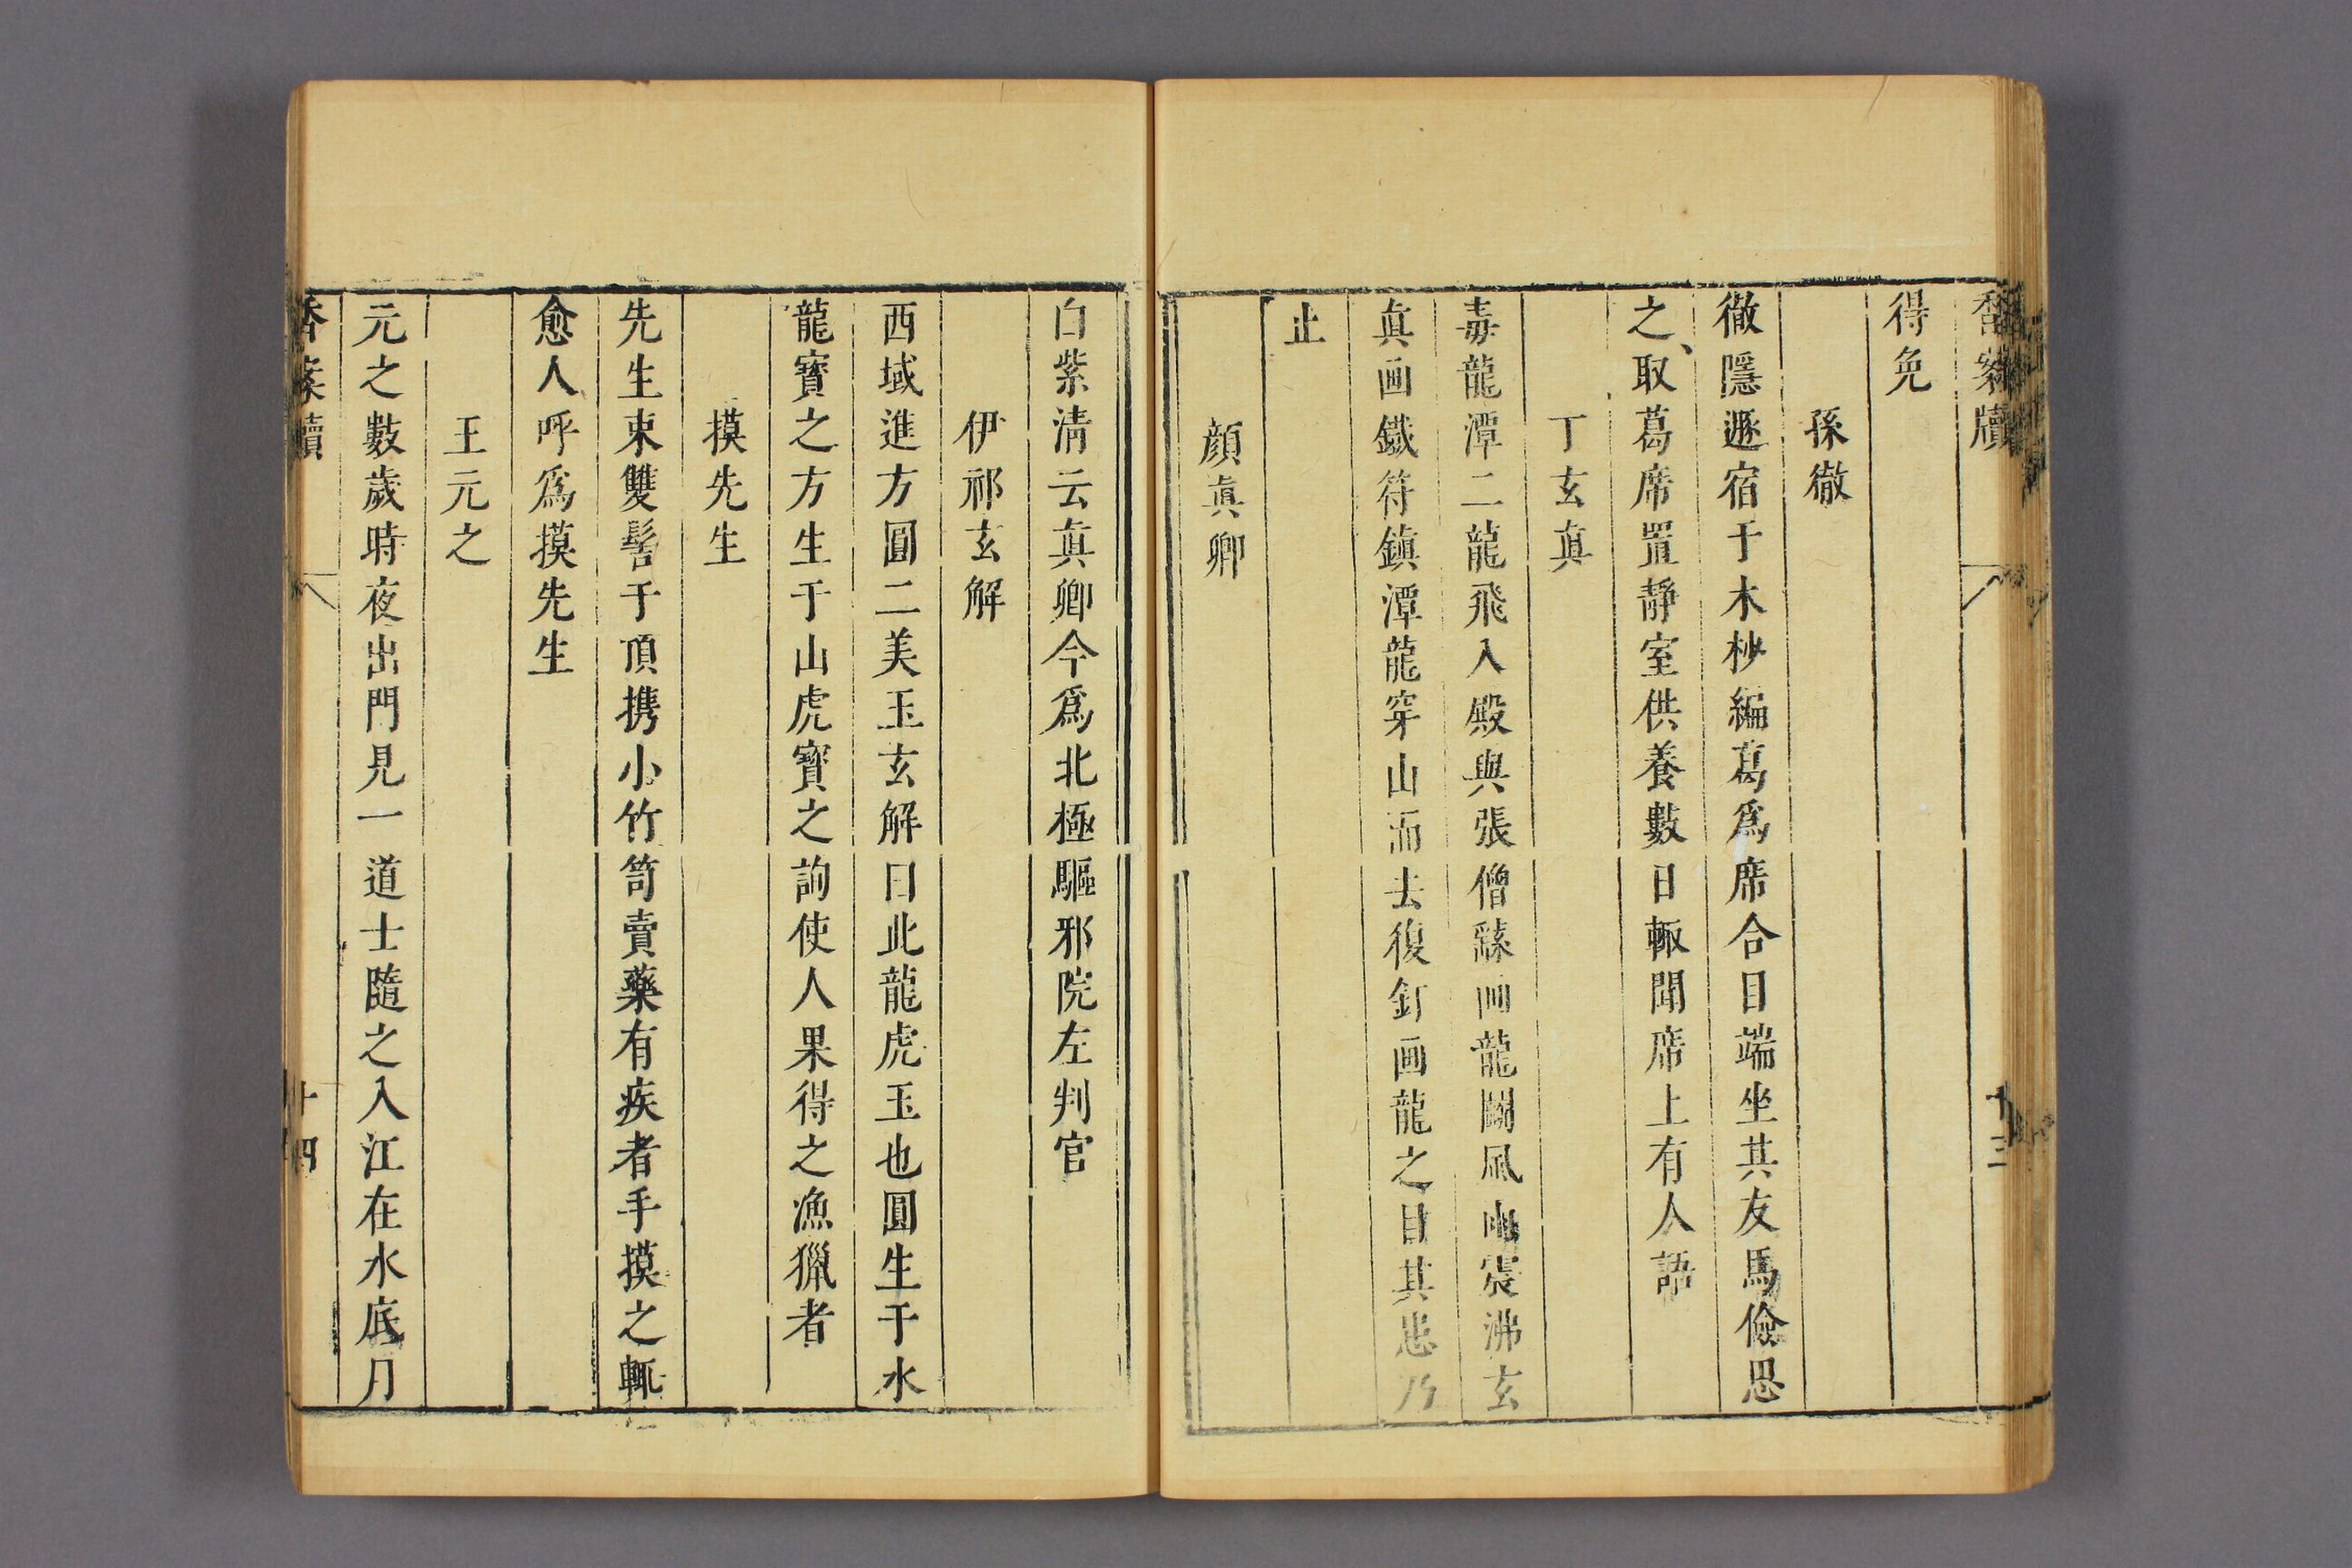 香案牘
十三
得免
孫徹
徹隱遯宿于木杪編葛爲席合目端坐其友馬儉思
之取葛席置靜室供養數日輙聞席上有人語
丁玄真
毒龍潭二龍飛入殿與張僧繇画龍鬭風雨震沸玄
真画鐵符鎮潭龍穿山而去復釘画龍之目其患乃
止
顔真卿
白紫清云真卿今爲北極驅邪院左判官
伊祁玄解
西域進方圓二美玉玄解曰此龍虎玉也圓生于水
龍寶之方生于山虎寶之詢使人果得之漁獵者
摸先生
先生束雙髻于頂携小竹笥賣藥有疾者手摸之輒
愈人呼爲摸先生
王元之
元之數歲時夜出門見一道士隨之入江在水底月
香案牘
十四